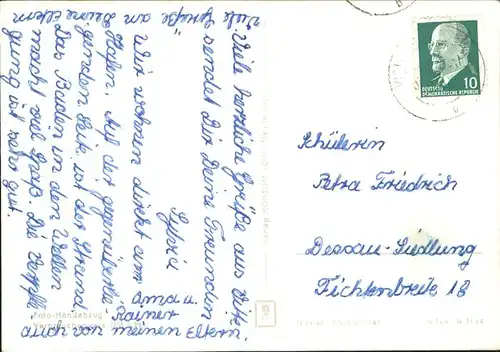 Viele herzliche Grüße aus
sendet Dir Deine Freundin
Sylvia
Wir wohnen direkt am
Hafen. Auf der gegenüberlie-
genden Seite ist der Strand
Das Baden in den Wellen
macht viel Spaß. Die Verpfle-
gung ist sehr gut.
Viele Grüße an Deine Eltern
Oma u.
Rainer
von meinen Eltern
DEUTSCHE
DEMOKRATISCHE REPUBLIK
10
Schülerin
Petra Friedrich
Dessau-Siedlung
Fichtenbreite 18